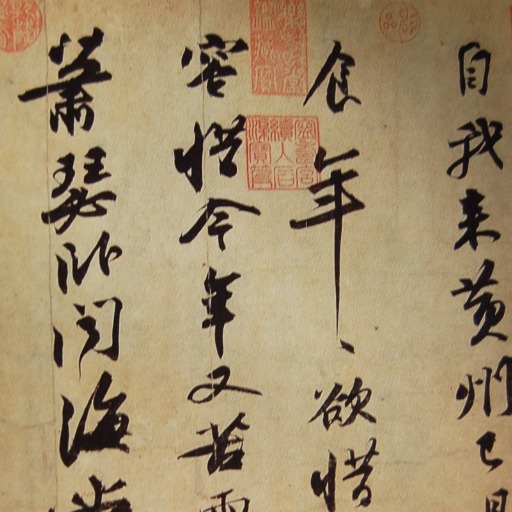 自我来黄州已
食年〻欲惜
容惜今年又苦雨
萧瑟卧闻海